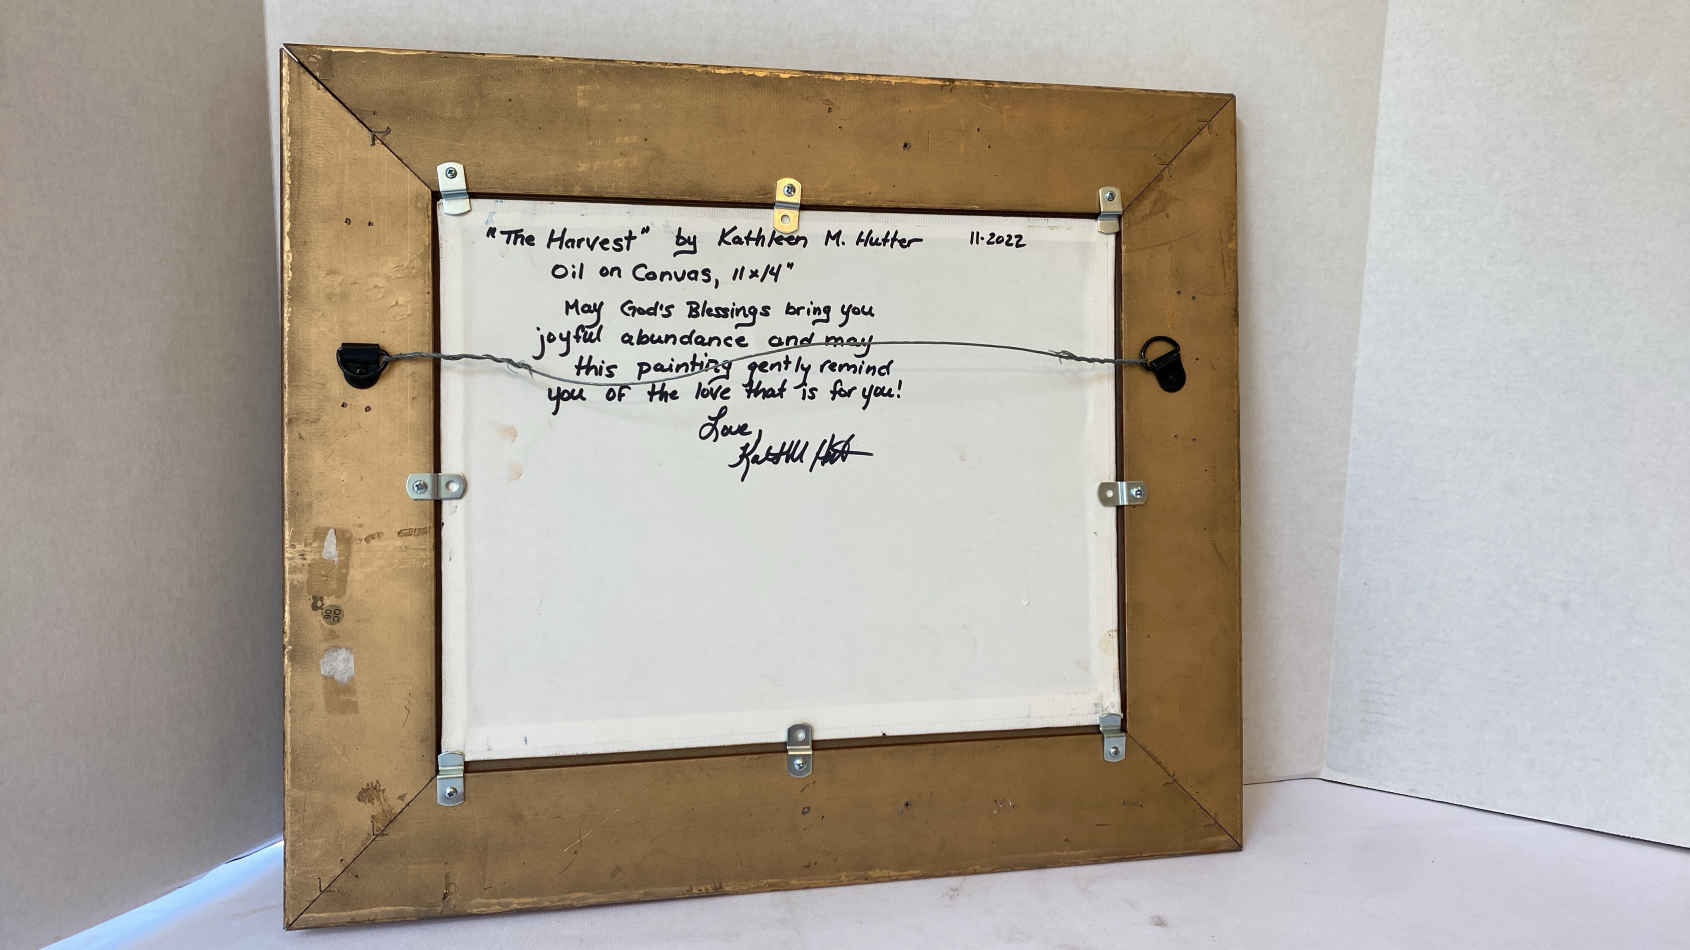 "The Harvest" by Kathleen M. Hutter 11-2022
Oil on Canvas, 11x14"
May God's Blessings bring you
joyful abundance and may
this painting gently remind
you of the love that is for you!
Love,